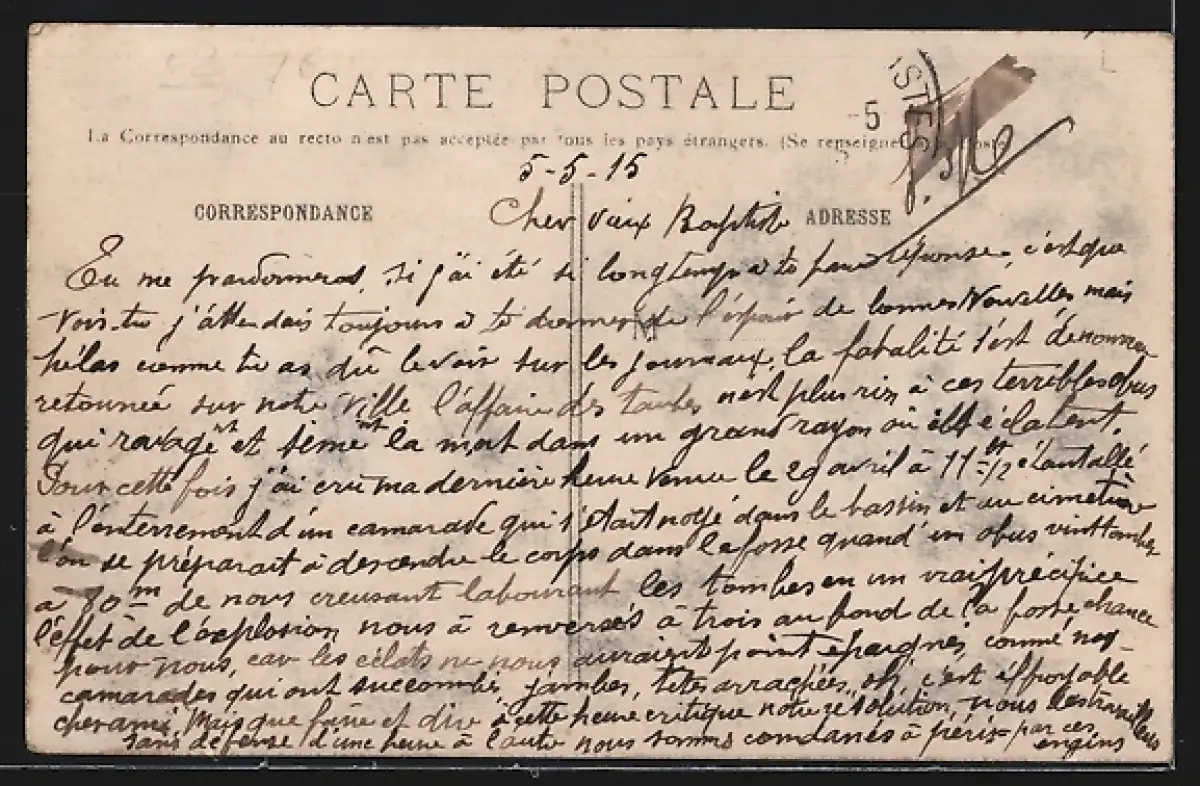 CARTE POSTALE
La Correspondance au recto n'est pas acceptée par tous les pays étrangers. (Se renseigner
5
5-5-15
CORRESPONDANCE
ADRESSE
Cher Vieux Baptiste
Tu me pardonneras, si j'ai été si longtemps à te faire réponse, c'est que
vois-tu j'attendais toujours à te donner de l'espoir de bonnes Nouvelles mais
hélas comme tu as dû le voir sur les journaux, la fatalité s'est de nouveau
retournée sur notre Ville l'affaire des taubes n'est plus rien à ces terribles obus
qui ravagent et sèment la mort dans un grand rayon où ils éclatent.
Pour cette fois j'ai cru ma dernière heure venue le 29 avril à 11 1/2 étant allé
à l'enterrement d'un camarade qui s'était noyé dans le bassin et au cimetière
l'on se préparait à descendre le corps dans la fosse quand un obus vint tomber
à 80m de nous creusant labourant les tombes en un vrai précipice
l'effet de l'explosion nous à renversés à trois au fond de la fosse chance
pour nous, car les éclats ne nous auraient point épargnés, comme nos
camarades qui ont succombés, jambes, têtes arrachées, oh, c'est éffroyable
cher ami, Mais que faire et dire à cette heure critique notre résolution, nous les travailleurs
sans défense d'une heure à l'autre nous sommes condanés à périr par ces
engins